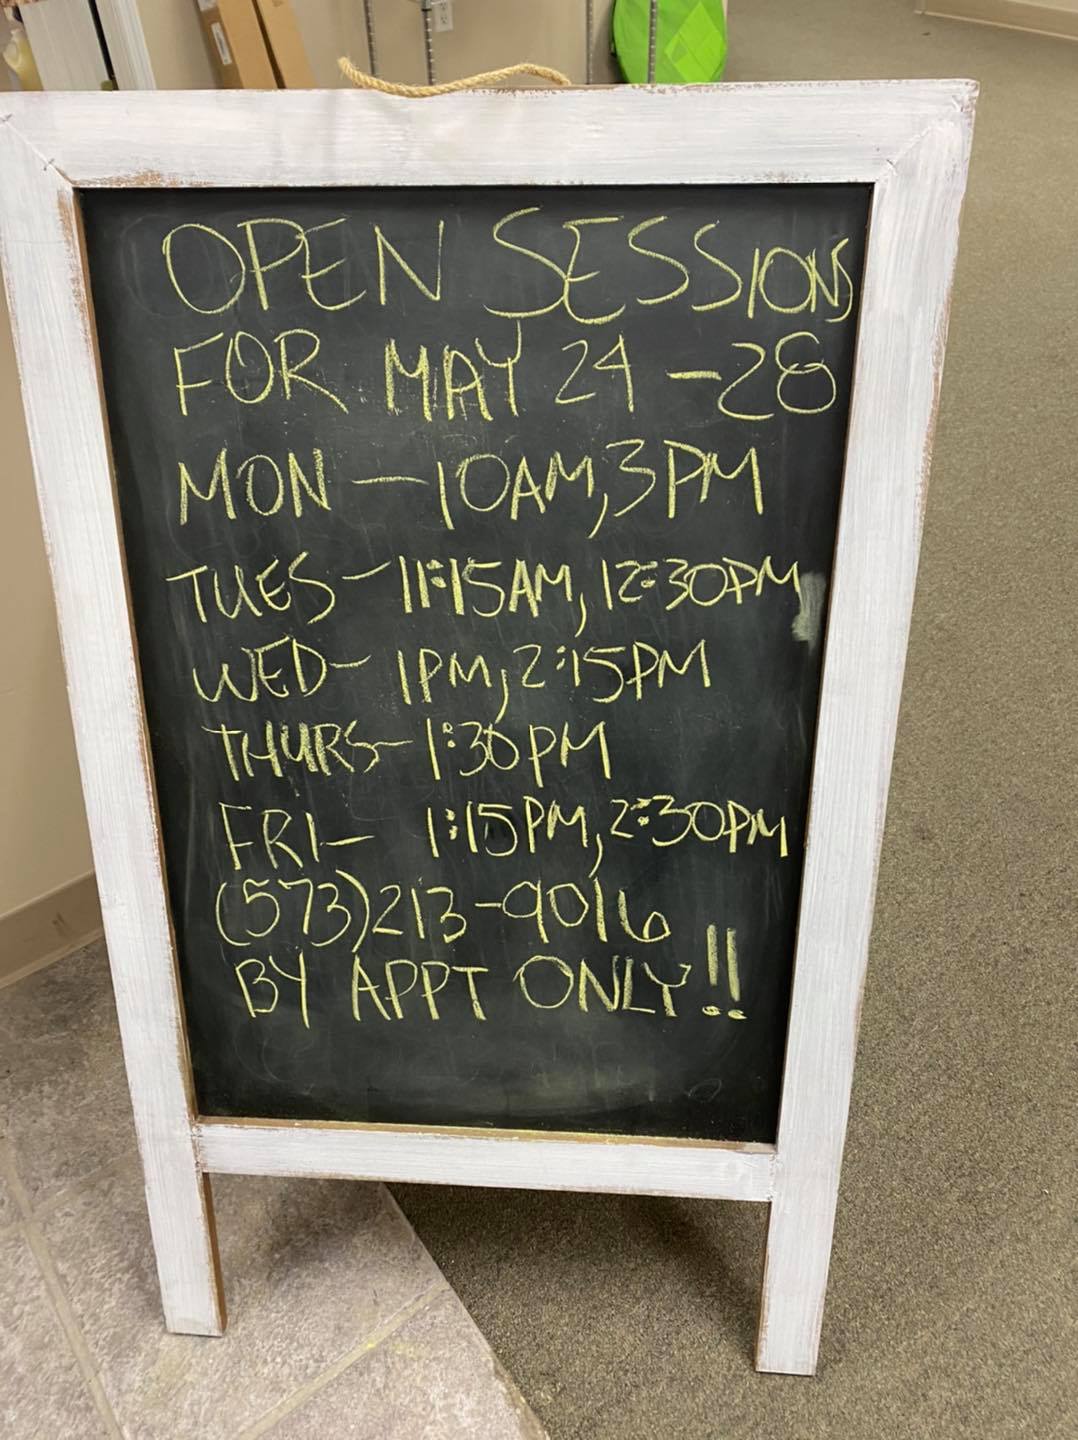 OPEN SESSIONS
FOR MAY 24 - 28
MON - 10AM, 3PM
TUES - 11:15AM, 12:30PM
WED - 1PM, 2:15PM
THURS - 1:30PM
FRI - 1:15PM, 2:30PM
(573)213-9016
BY APPT ONLY!!